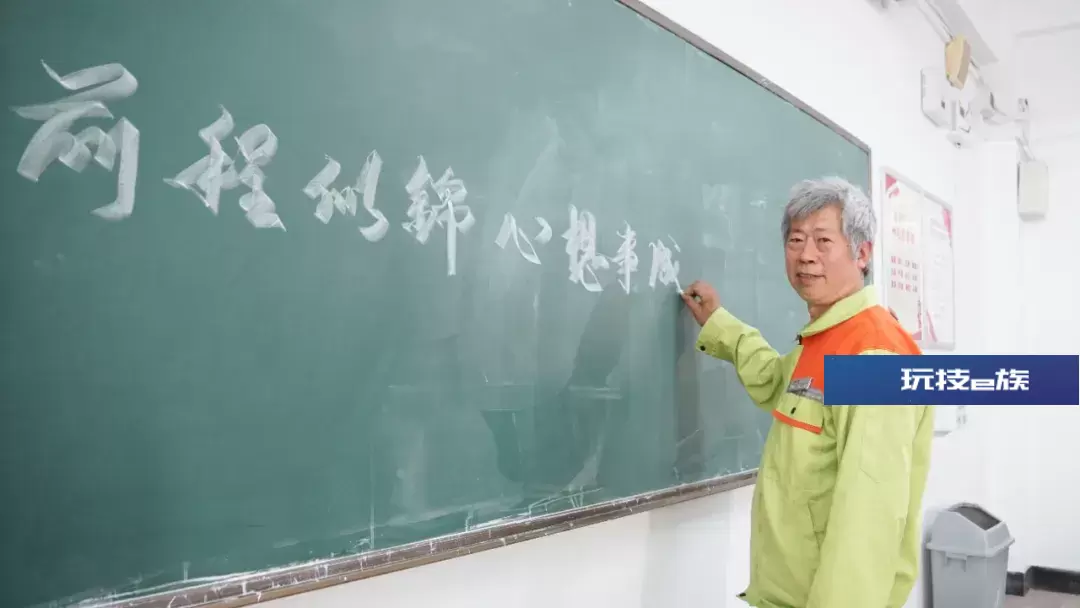 前程似锦心想事成
玩技e族